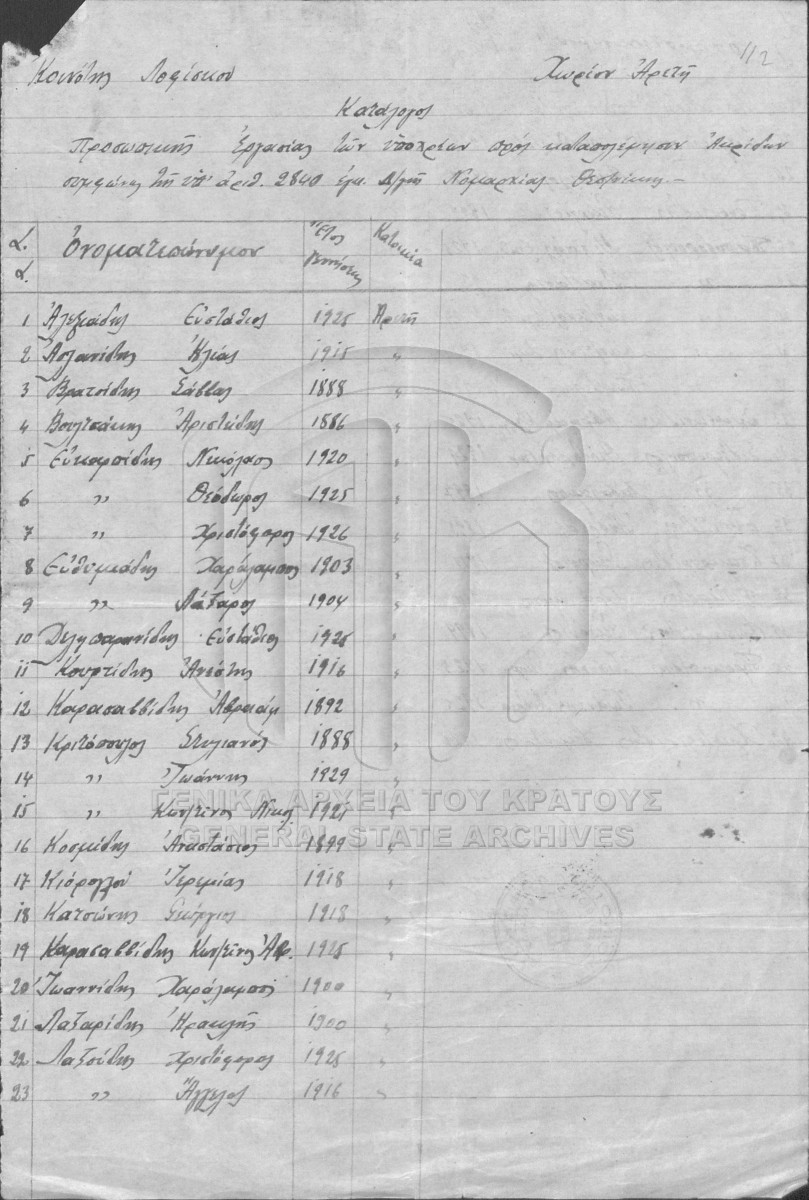 112
Κοινότης Λοφίσκου Χωρίον Ἀρετῆ
Κατάλογος
Προσωπικῆς Ἐργασίας τῶν ὑποχρέων πρός καταπολέμησιν Ἀκρίδων
συμφώνως τῇ ὑπ' ἀριθ. 2840 Νομαρχίας Θεσ/νίκης -
Α. Α. Ὀνοματεπώνυμον Ἔτος Γεννήσεως Κατοικία
1 Ἀλεξιάδης Εὐστάθιος 1925 Ἀρετῆ
2 Ἀσλανίδης Ἠλίας 1915 "
3 Βρατσίδης Σάββας 1888 "
4 Βουλτσάκης Ἀριστείδης 1886 "
5 Εὐκαρπίδης Νικόλαος 1920 "
6 " Θεόδωρος 1925 "
7 " Χριστόφορος 1926 "
8 Εὐθυμιάδης Χαράλαμπος 1903 "
9 " Λάζαρος 1904 "
10 Δεληπαρανίδης Εὐστάθιος 1925 "
11 Κουρτίδης Ἀνέστης 1916 "
12 Καρασαββίδης Ἀβραάμ 1892 "
13 Κριτόπουλος Στυλιανός 1888 "
14 " Ἰωάννης 1929 "
15 " Κων/τῖνος Νικολ. 1921 "
16 Κοσμίδης Ἀναστάσιος 1899 "
17 Κιόρογλου Ἰερεμίας 1918 "
18 Κατσώνης Γεώργιος 1918 "
19 Καρασαββίδης Κων/τῖνος Ἀβρ. 1925 "
20 Ἰωαννίδης Χαράλαμπος 1900 "
21 Λαζαρίδης Ἡρακλῆς 1900 "
22 Λαζίδης Χριστόφορος 1925 "
23 " Ἄγγελος 1916 "
ΓΕΝΙΚΑ ΑΡΧΕΙΑ ΤΟΥ ΚΡΑΤΟΥΣ
GENERAL STATE ARCHIVES